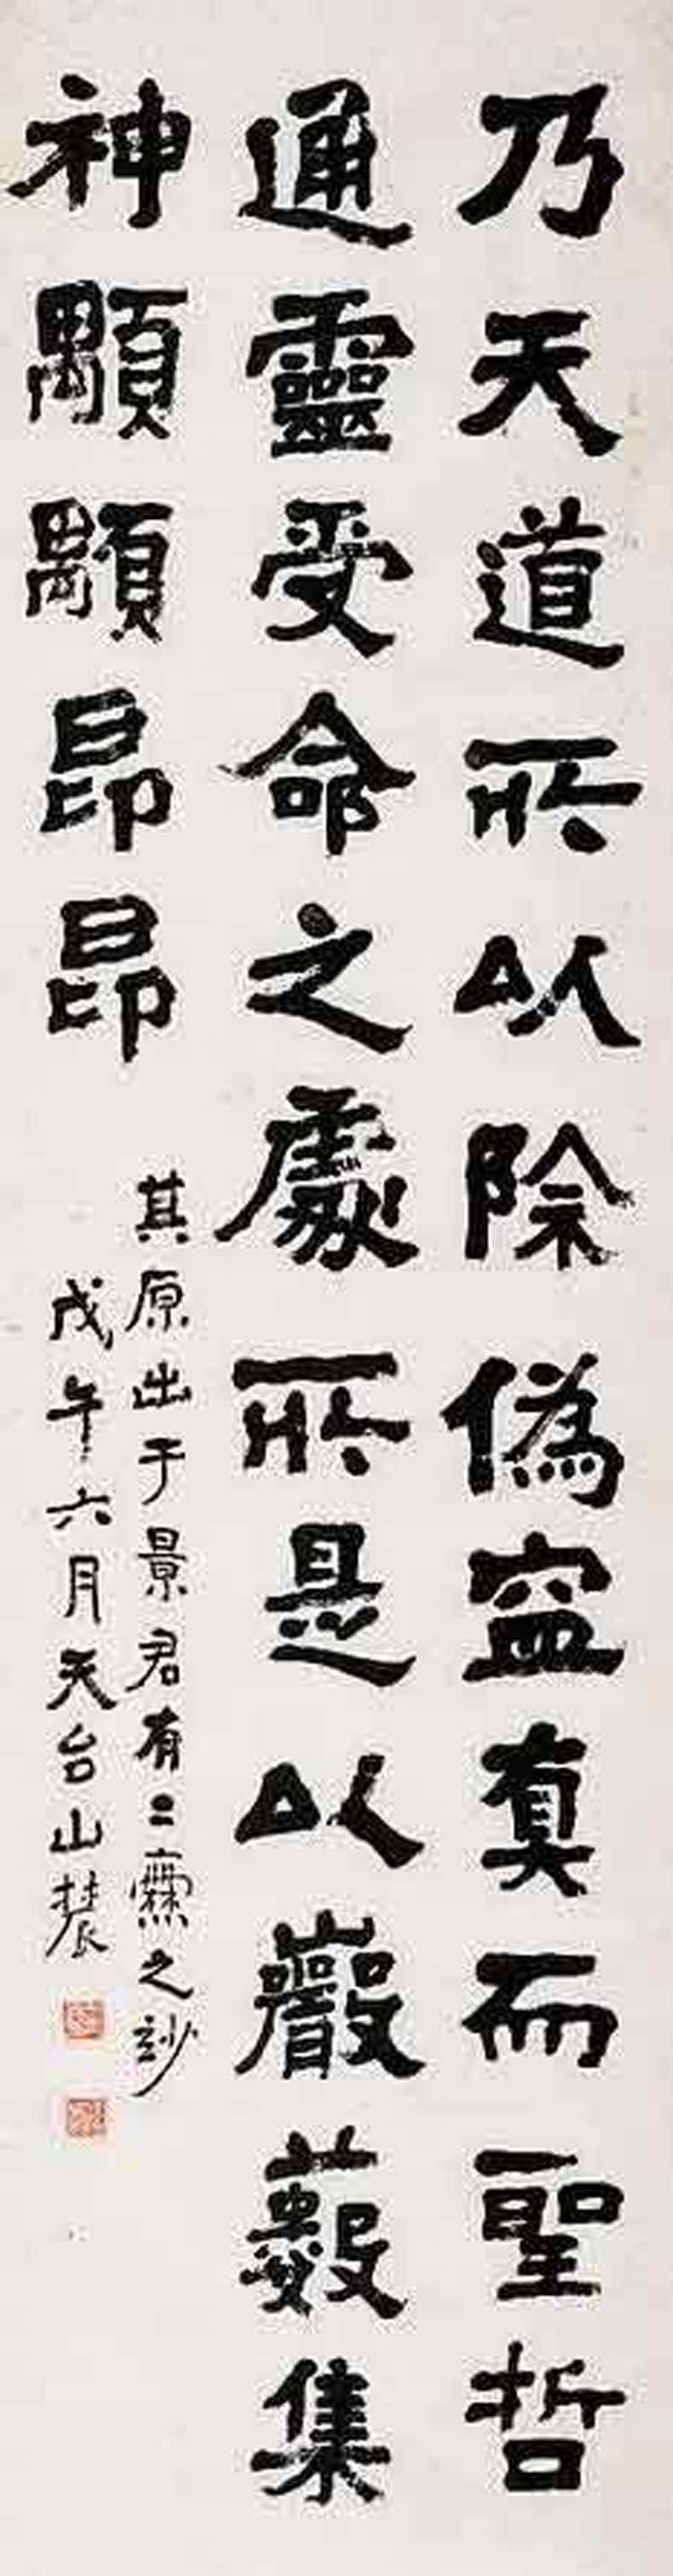 乃天道所以除偽寍真而聖哲
通靈受命之處所是以巖薮集
神顒顒昂昂
其原出于景君有二爨之妙
戊午六月天台山農